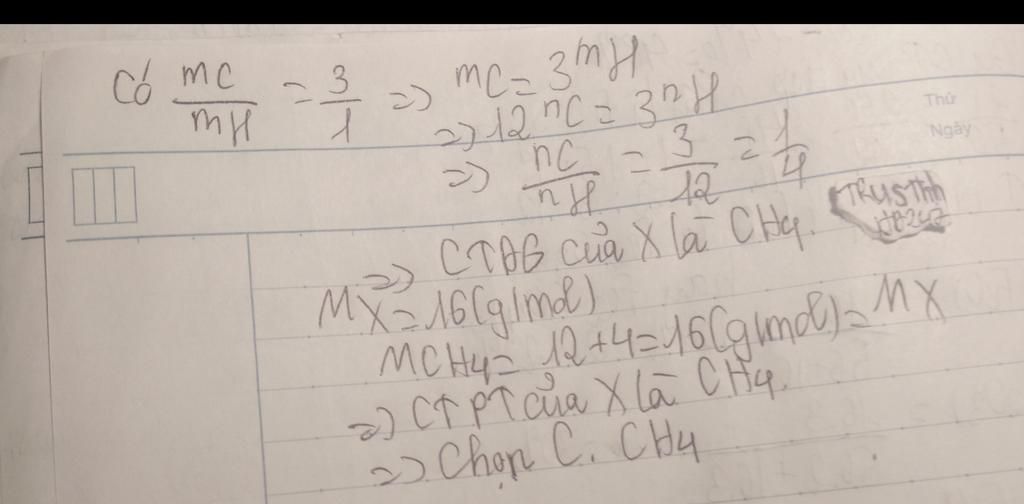 Có mC/mH = 3/1 => mC = 3mH
=> 12nC = 3nH
=> nC/nH = 3/12 = 1/4
Thứ
Ngày
=> CTĐG của X là CH4.
MX = 16(g/mol)
MCH4 = 12+4 = 16(g/mol) = MX
=> CTPT của X là CH4.
=> Chọn C. CH4